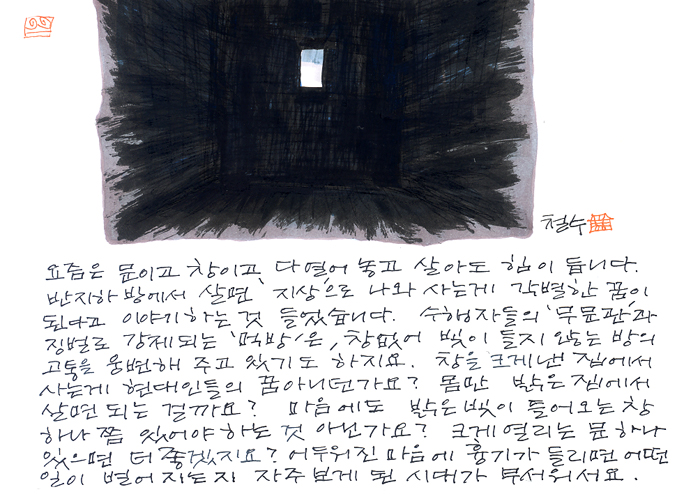 철수
요즘은 문이고 창이고, 다 열어 놓고 살아도 힘이 듭니다.
반지하 방에서 살면 '지상'으로 나와 사는게 각별한 꿈이
된다고 이야기하는 것 들었습니다. 수행자들의 '무문관'과
징벌로 강제되는 '먹방'은, 창없어 빛이 들지 않는 방의
고통을 웅변해 주고 있기도 하지요. 창을 크게 낸 집에서
사는게 현대인들의 꿈 아니던가요? 몸만 밝은 집에서
살면 되는 걸까요? 마음에도 밝은 빛이 들어오는 창
하나쯤 있어야 하는 것 아닌가요? 크게 열리는 문 하나
있으면 더 좋겠지요? 어두워진 마음에 흉기가 들리면 어떤
일이 벌어지는지 자주 보게 된 시대가 무서워서요.